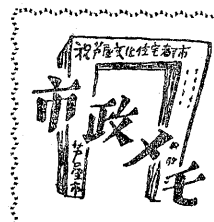 祝芦屋文化住宅都市
市政メモ
芦屋市